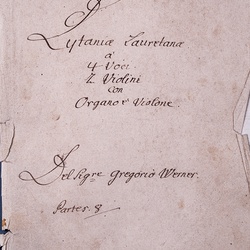 Lytaniæ Lauretanæ
à
4 Voci
2 Violini
con
Organo è Violone.
Del Sigre Gregorio Werner.
Partes 8